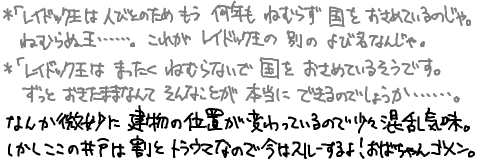 *「レイドック王は 人びとのため もう 何年も ねむらず 国を おさめているのじゃ。
ねむらぬ王‥‥‥。これが レイドック王の 別の よび名なんじゃ。
*「レイドック王は まったく ねむらないで 国を おさめているそうです。
ずっと おきたままなんて そんなことが 本当に できるのでしょうか‥‥‥。
なんか微妙に 建物の位置が変わっているので少々混乱気味。
しかしここの井戸は割とトラウマなので今はスルーするよ!おばちゃんゴメン。